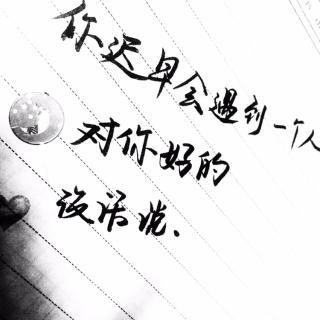 你迟早会遇到一个人
对你好的
没话说、